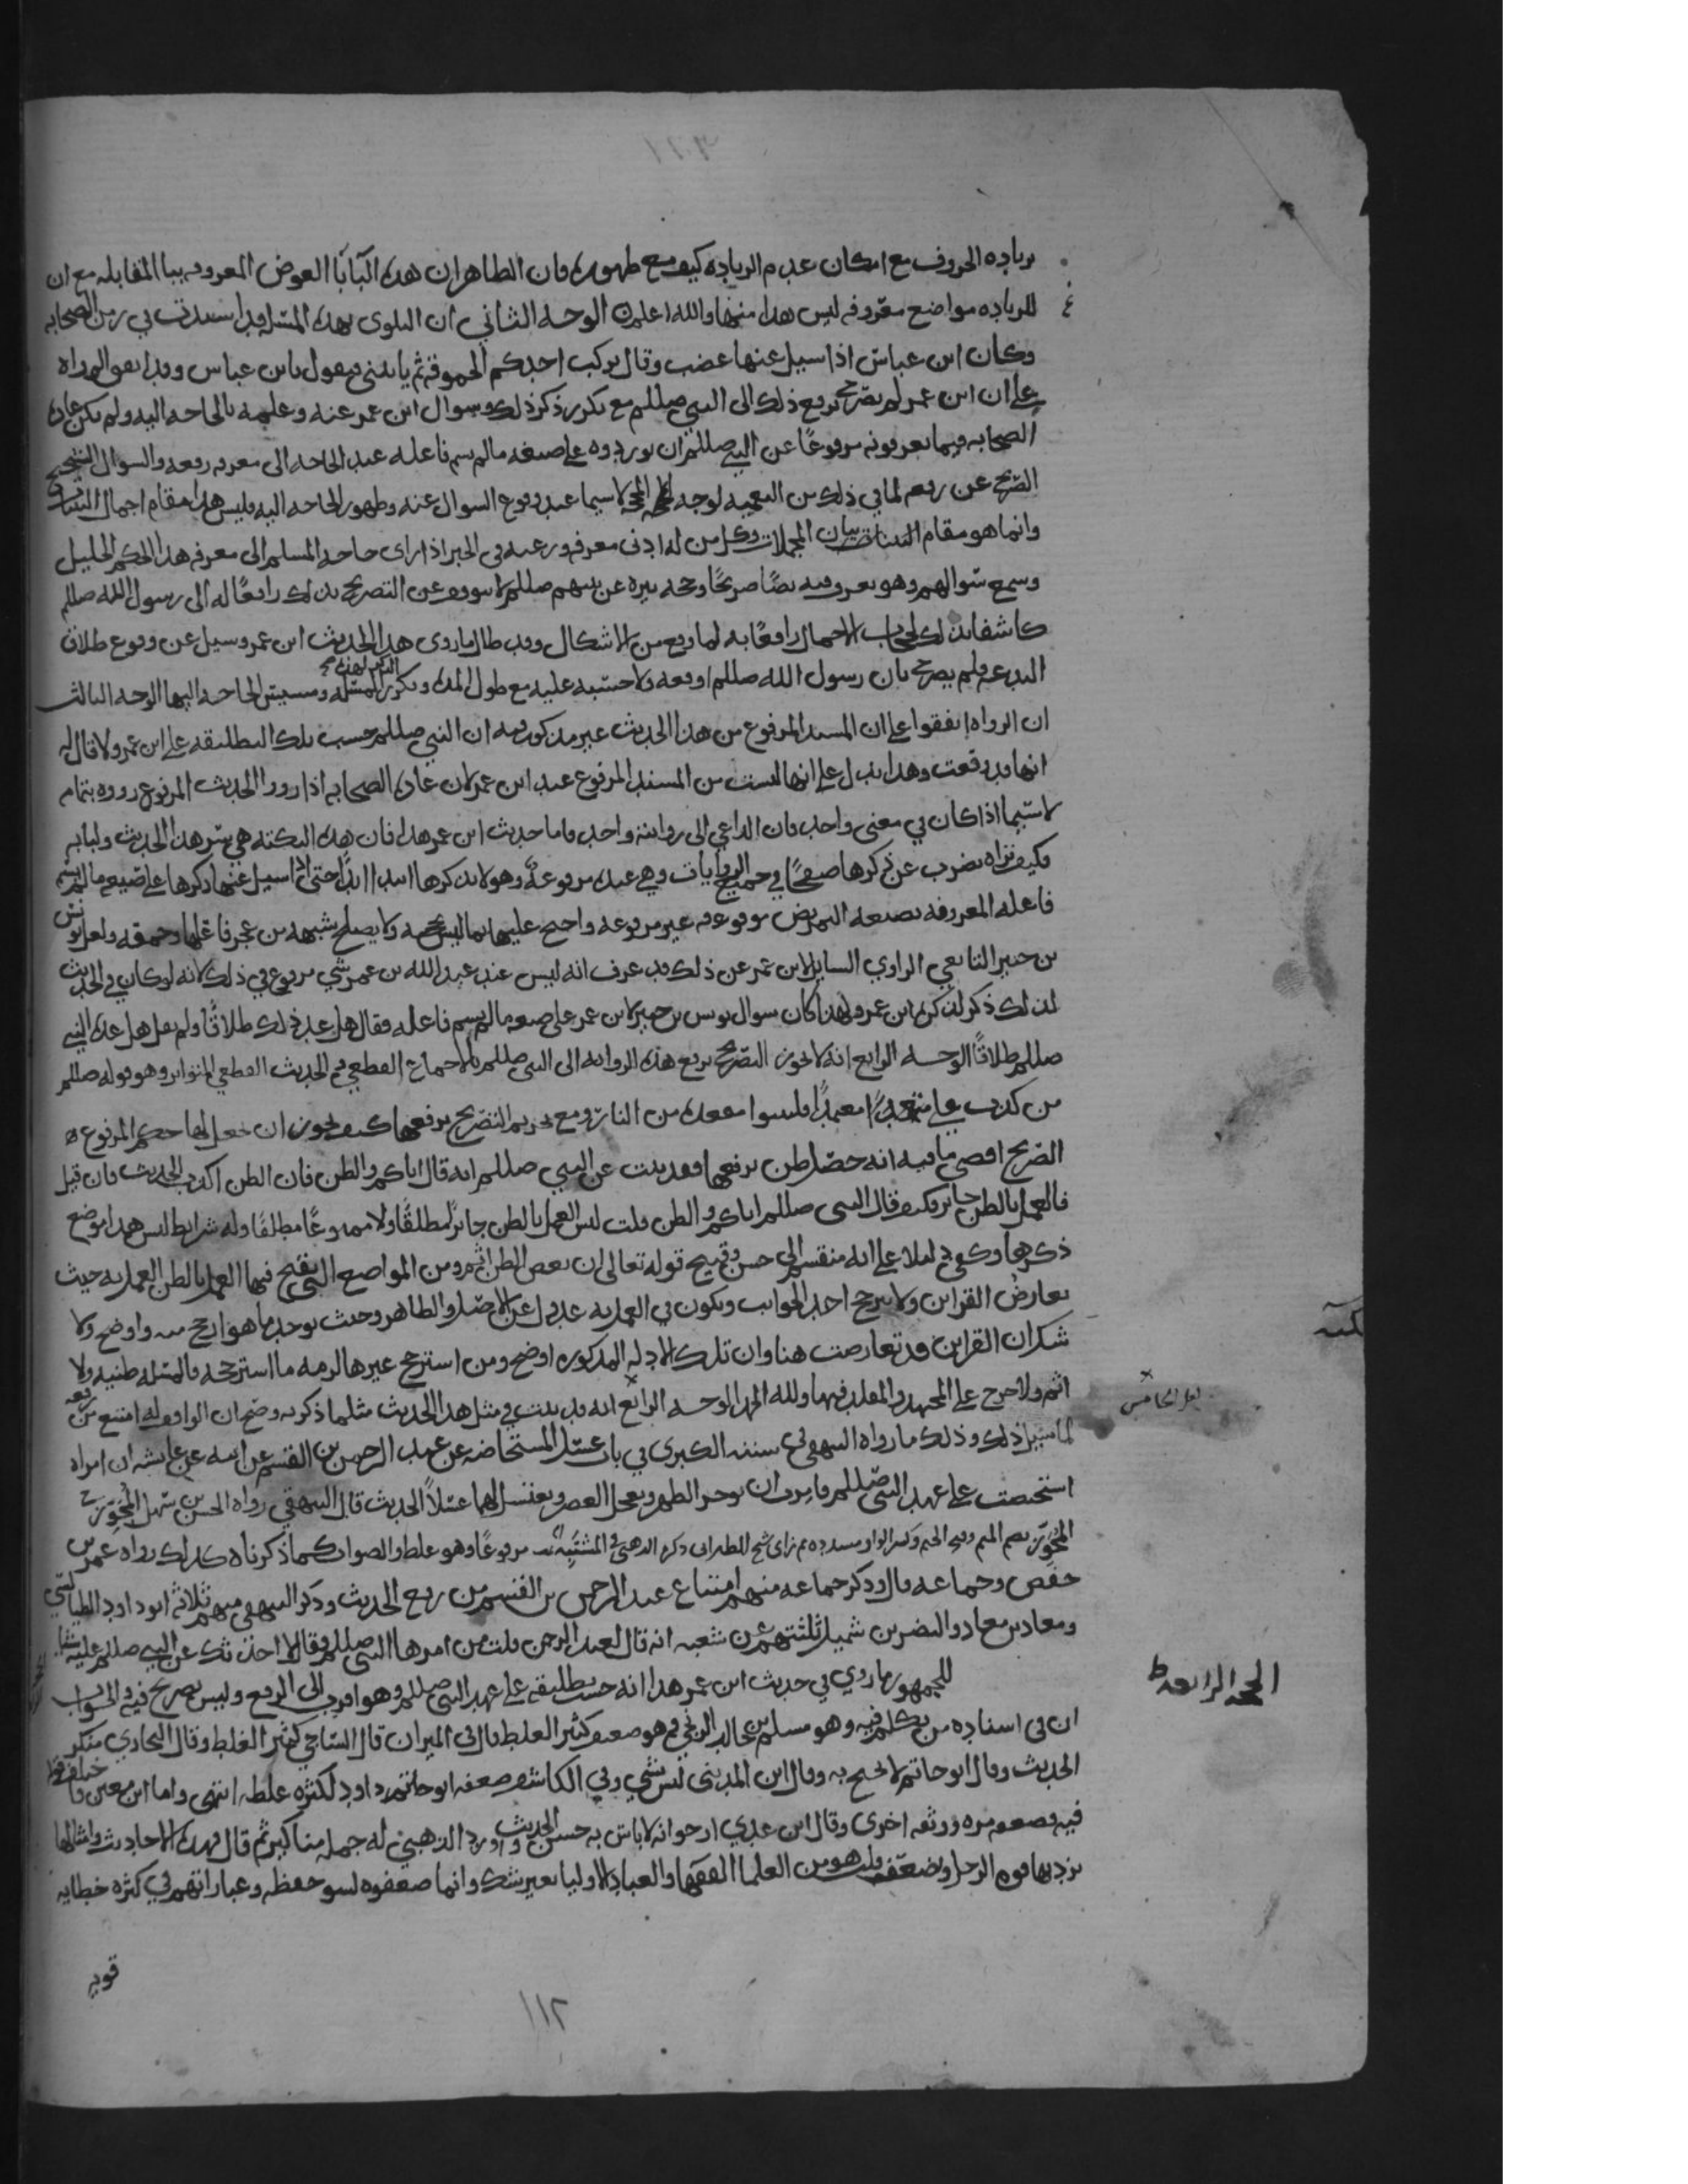 بزياده الحروف مع امكان عدم الزياده كيف مع ظهوره فان الظاهر ان هذه البا با العوض المعروفه ببا المقابله مع ان
للزياده مواضع معروفه ليس هذا منها والله اعلم الوجه الثاني ان البلوى بهذه المسله قد اشتدت في زمن الصحابه
وكان ابن عباس اذا سيل عنها غضب وقال يركب احدكم الحموقه ثم ياتيني فيقول يابن عباس وقد اتفق الرواه
على ان ابن عمر لم يصرح برفع ذلك الى النبي صللم مع تكرر ذكر ذلك وسوال ابن عمر عنه وعلمه بالحاجه اليه ولم يكن عاده
الصحابه فيما يعرفونه مرفوعًا عن النبي صللم ان يوردوه على صيغه مالم يسم فاعله عند الحاجه الى معرفه رفعه والسوال
الصريح عن رفعه لما في ذلك من التعميه لوجه الحجه لاسيما عند وقوع السوال عنه وظهور الحاجه اليه وليس هذا مقام اجمال البينات
وانما هو مقام بيان المجملات وكل من له ادنى معرفه ورغبه في الخير اذا راى حاجه المسلم الى معرفه هذا الحكم الجليل
وسمع سوالهم وهو يعرف فيه نصًا صريحًا وحجه نيره عن نبيهم صللم لا يتوقف عن التصريح بذلك رافعًا له الى رسول الله صللم
كاشفا بذلك لحجاب الاجمال رافعًا به لما وقع من الاشكال وقد طال ما روى هذا الحديث ابن عمر وسيل عن وقوع طلاق
البدعه ولم يصرح بان رسول الله صللم اوقعه ولا حسبه عليه مع طول المده وتكرر المسله ومسيس الحاجه اليها الوجه الثالث
ان الرواه اتفقوا على ان المسند المرفوع من هذا الحديث غير مذكور فيه ان النبي صللم حسب تلك التطليقه على ابن عمر ولا قال له
انها قد وقعت وهذا يدل على انها ليست من المسند المرفوع عند ابن عمر لان عاده الصحابه اذا رووا الحديث المرفوع رووه بتمامه
لاسيما اذا كان في معنى واحد فان الداعي الى روايته واحد فاما حديث ابن عمر هذا فان هذه النكته هي سر هذا الحديث ولبابه
فكيف تراه يضرب عن ذكرها صفحًا في جميع الروايات وهي عنده مرفوعةٌ وهو لا يذكرها ابدا ابدًا حتى اذا سيل عنها ذكرها على صيغه مالم يسم
فاعله المعروفه بصيغه التمريض موقوفه غير مرفوعه واحتج عليها بما ليس بحجه ولا يصلح شبهه من عجز فاعلها وحمقه ولعل يونس
بن جبير التابعي الراوي السايل لابن عمر عن ذلك قد عرف انه ليس عند عبد الله بن عمر شي مرفوع في ذلك لانه لو كان في الحديث
لذلك ذكر لذكره ابن عمر ولهذا كان سوال يونس بن جبير لابن عمر على صيغه مالم يسم فاعله فقال هل عد ذلك طلاقًا ولم يقل هل عده النبي
صللم طلاقًا الوجه الرابع انه لا يجوز التصريح برفع هذه الروايه الى النبي صللم بالاجماع القطعي وفي الحديث القطعي المتواتر وهو قوله صللم
من كذب علي متعمدًا فليتبوا مقعده من النار ومع تحريم التصريح برفعها كيف يجوز ان نجعل لها حكم المرفوع
الصريح اقصى مافيه انه حصل ظن برفعها وقد ثبت عن النبي صللم انه قال اياكم والظن فان الظن اكذب الحديث فان قيل
فالعمل بالظن جايز وكيف قال النبي صللم اياكم والظن قلت ليس العمل بالظن جايزًا مطلقًا ولا ممنوعًا مطلقا وله شرايط ليس هذا موضع
ذكرها وكفى دليلا على انه منقسم الى حسن وقبيح قوله تعالى ان بعض الظن اثم ومن المواضع التي يقبح فيها العمل بالظن العمل به حيث
تعارضُ القراين ولا يترجح احد الجوانب ويكون في العمل به عدول عن الاصل والظاهر وحيث يوجد ما هو ارجح منه واوضح ولا
شك ان القراين قد تعارضت هنا وان تلك الادله المذكوره اوضح ومن استرجح غيرها لزمه ما استرجحه فالمسله ظنيه ولا
اثم ولا حرج على المجتهد والمقلد فيها ولله الحمد الوجه الرابع انه قد ثبت في مثل هذا الحديث مثلما ذكر به وضح ان الراوي له امتنع من رفعه
لما سيل ذلك وذلك ما رواه البيهقي في سننه الكبرى في باب غسل المستحاضه عن عبد الرحمن بن القسم عن ابيه عن عايشه ان امراه
استحيضت على عهد النبي صللم فامرت ان توخر الظهر وتعجل العصر وتغتسل لهما غسلاً الحديث قال البيهقي رواه الحسن بن سهل المُجَوِّز
المُجَوِّز بضم الميم وفتح الجيم وكسر الواو مشدده ثم زاي شيخ للطبراني ذكره الذهبي في المشتَبِه مرفوعًا وهو غلط والصواب كما ذكرناه كذلك رواه عمر بن
حفص وجماعه قال وذكر جماعه منهم امتناع عبد الرحمن بن القسم من رفع الحديث وذكر البيهقي منهم ثلاثه ابو داود الطيالسي
ومعاذ بن معاذ والنضر بن شميل ثلثتهم عن شعبه انه قال لعبد الرحمن قلت من امرها النبي صللم فقال لا احدثك عن النبي صللم عليه شيا
للجمهور ما روي في حديث ابن عمر هذا انه حسبت تطليقه على عهد النبي صللم وهو اقرب الى الرفع وليس بصريح فيه والجواب
الحجه الرابعه
ان في اسناده من تكلم فيه وهو مسلم بن خالد الزنجي وهو ضعيف كثير الغلط قال في الميزان قال الساجي كثير الغلط وقال البخاري منكر
الحديث وقال ابو حاتم لا يحتج به وقال ابن المديني ليس بشي وفي الكاشف ضعفه ابو داود لكثره غلطه انتهى واما ابن معين
فيه فضعفه مره ووثقه اخرى وقال ابن عدي ارجوا انه لا باس به حسن الحديث واورد الذهبي له جمله مناكير ثم قال فهذه الاحاديث وامثالها
ترد بها قوه الرجل ويضعف قلت هو من العلما الفقها والعباد الاوليا بغير شك وانما ضعفوه لسو حفظه وعباراتهم في كثره خطايه
قويه
١١٢